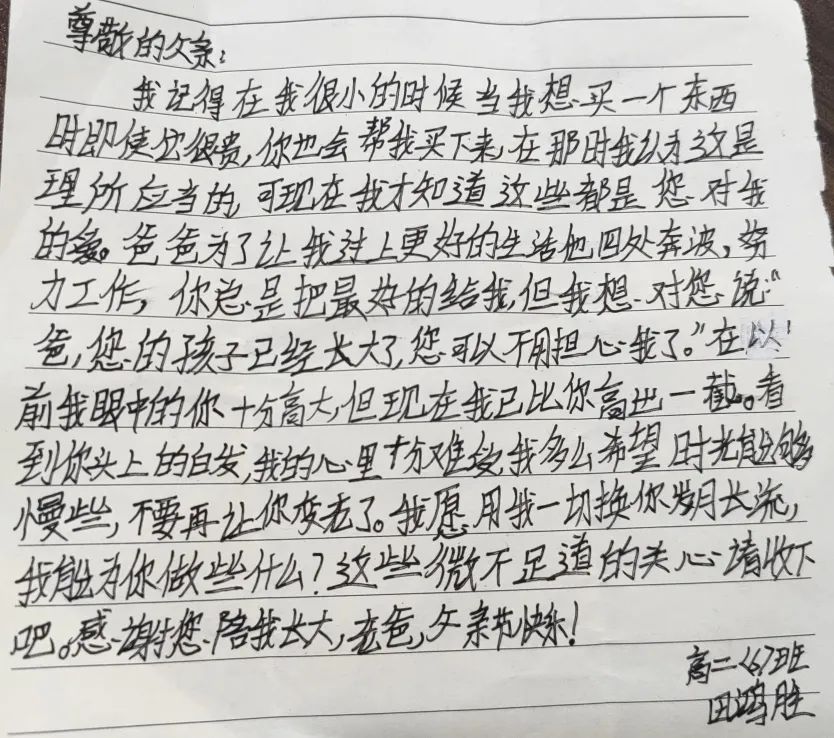 尊敬的父亲：
我记得在我很小的时候当我想买一个东西
时即使它很贵，你也会帮我买下来，在那时我认为这是
理所应当的，可现在我才知道这些都是您对我
的爱。爸爸为了让我过上更好的生活他四处奔波，努
力工作，你总是把最好的给我，但我想对您说“
爸，您的孩子已经长大了，您可以不用担心我了。”在以
前我眼中的你十分高大，但现在我已比你高出一截。看
到你头上的白发，我的心里十分难受，我多么希望时光能够
慢些，不要再让你变老了。我愿用我一切换你岁月长流，
我能为你做些什么？这些微不足道的关心请收下
吧。感谢您陪我长大，老爸，父亲节快乐！
高二<6>班
田鸿胜